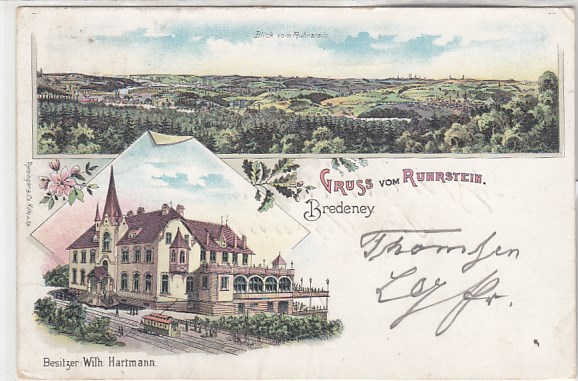 Blick vom Ruhrstein
GRUSS VOM RUHRSTEIN.
Bredeney
Thomsen
Besitzer: Wilh. Hartmann.